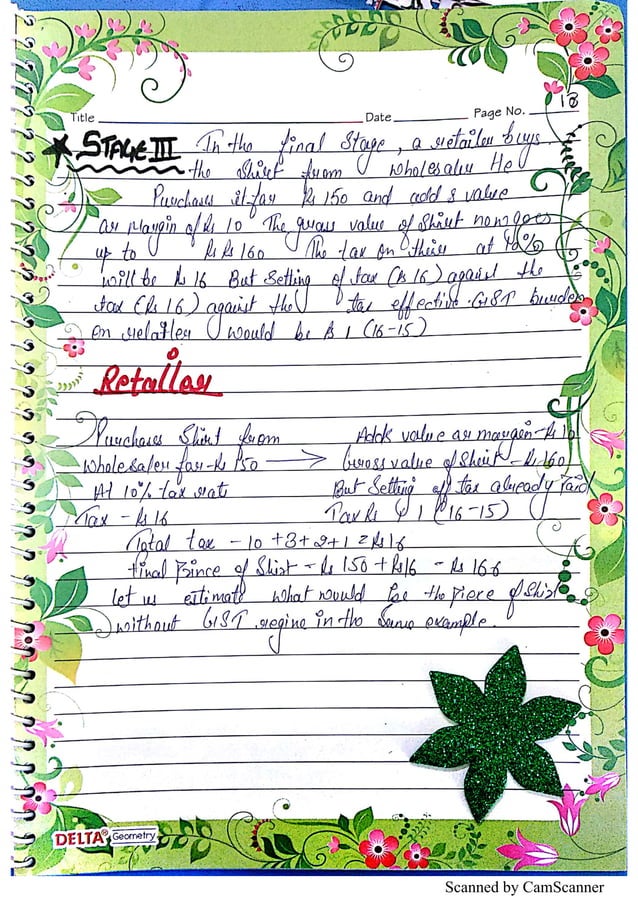 Title Date Page No. 18
STAGE III In the final Stage, a retailer buys
the Shirt from wholesaler He
Purchases it for Rs 150 and adds value
as Margin of Rs 10 The gross value of Shirt now goes
up to Rs Rs 160 The tax on this at 10%
will be Rs 16 But Setting of tax (Rs 16) against the
tax (Rs 16) against the tax effective GIST burden
on retailer would be Rs 1 (16-15)
Retailer
Purchases Shirt from Adds value as margin - Rs 10
Wholesaler for - Rs 150 → Gross value of Shirt - Rs 160
At 10% tax rate But Setting off tax already Paid
Tax - Rs 16 Tax Rs 1 (16-15)
Total tax - 10+3+2+1 = Rs 16
final Prince of Shirt - Rs 150 + Rs 16 - Rs 166
let us estimate what would be the piece of Shirt
without GIST regine in the Same example.
DELTA® Geometry
Scanned by CamScanner